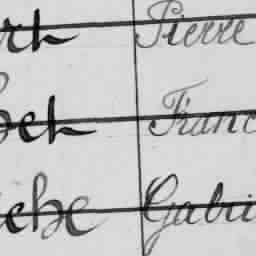 rt Pierre
het Franc
iche Gabri